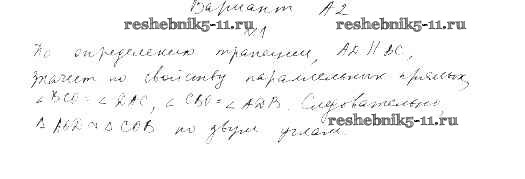 Вариант А2
reshebnik5-11.ru reshebnik5-11.ru
№1
По определению трапеции, AD || BC,
значит по свойству параллельных прямых,
∠BCO = ∠DAC, ∠CBO = ∠ADB. Следовательно,
reshebnik5-11.ru
Δ AOD ~ Δ COB по двум углам.